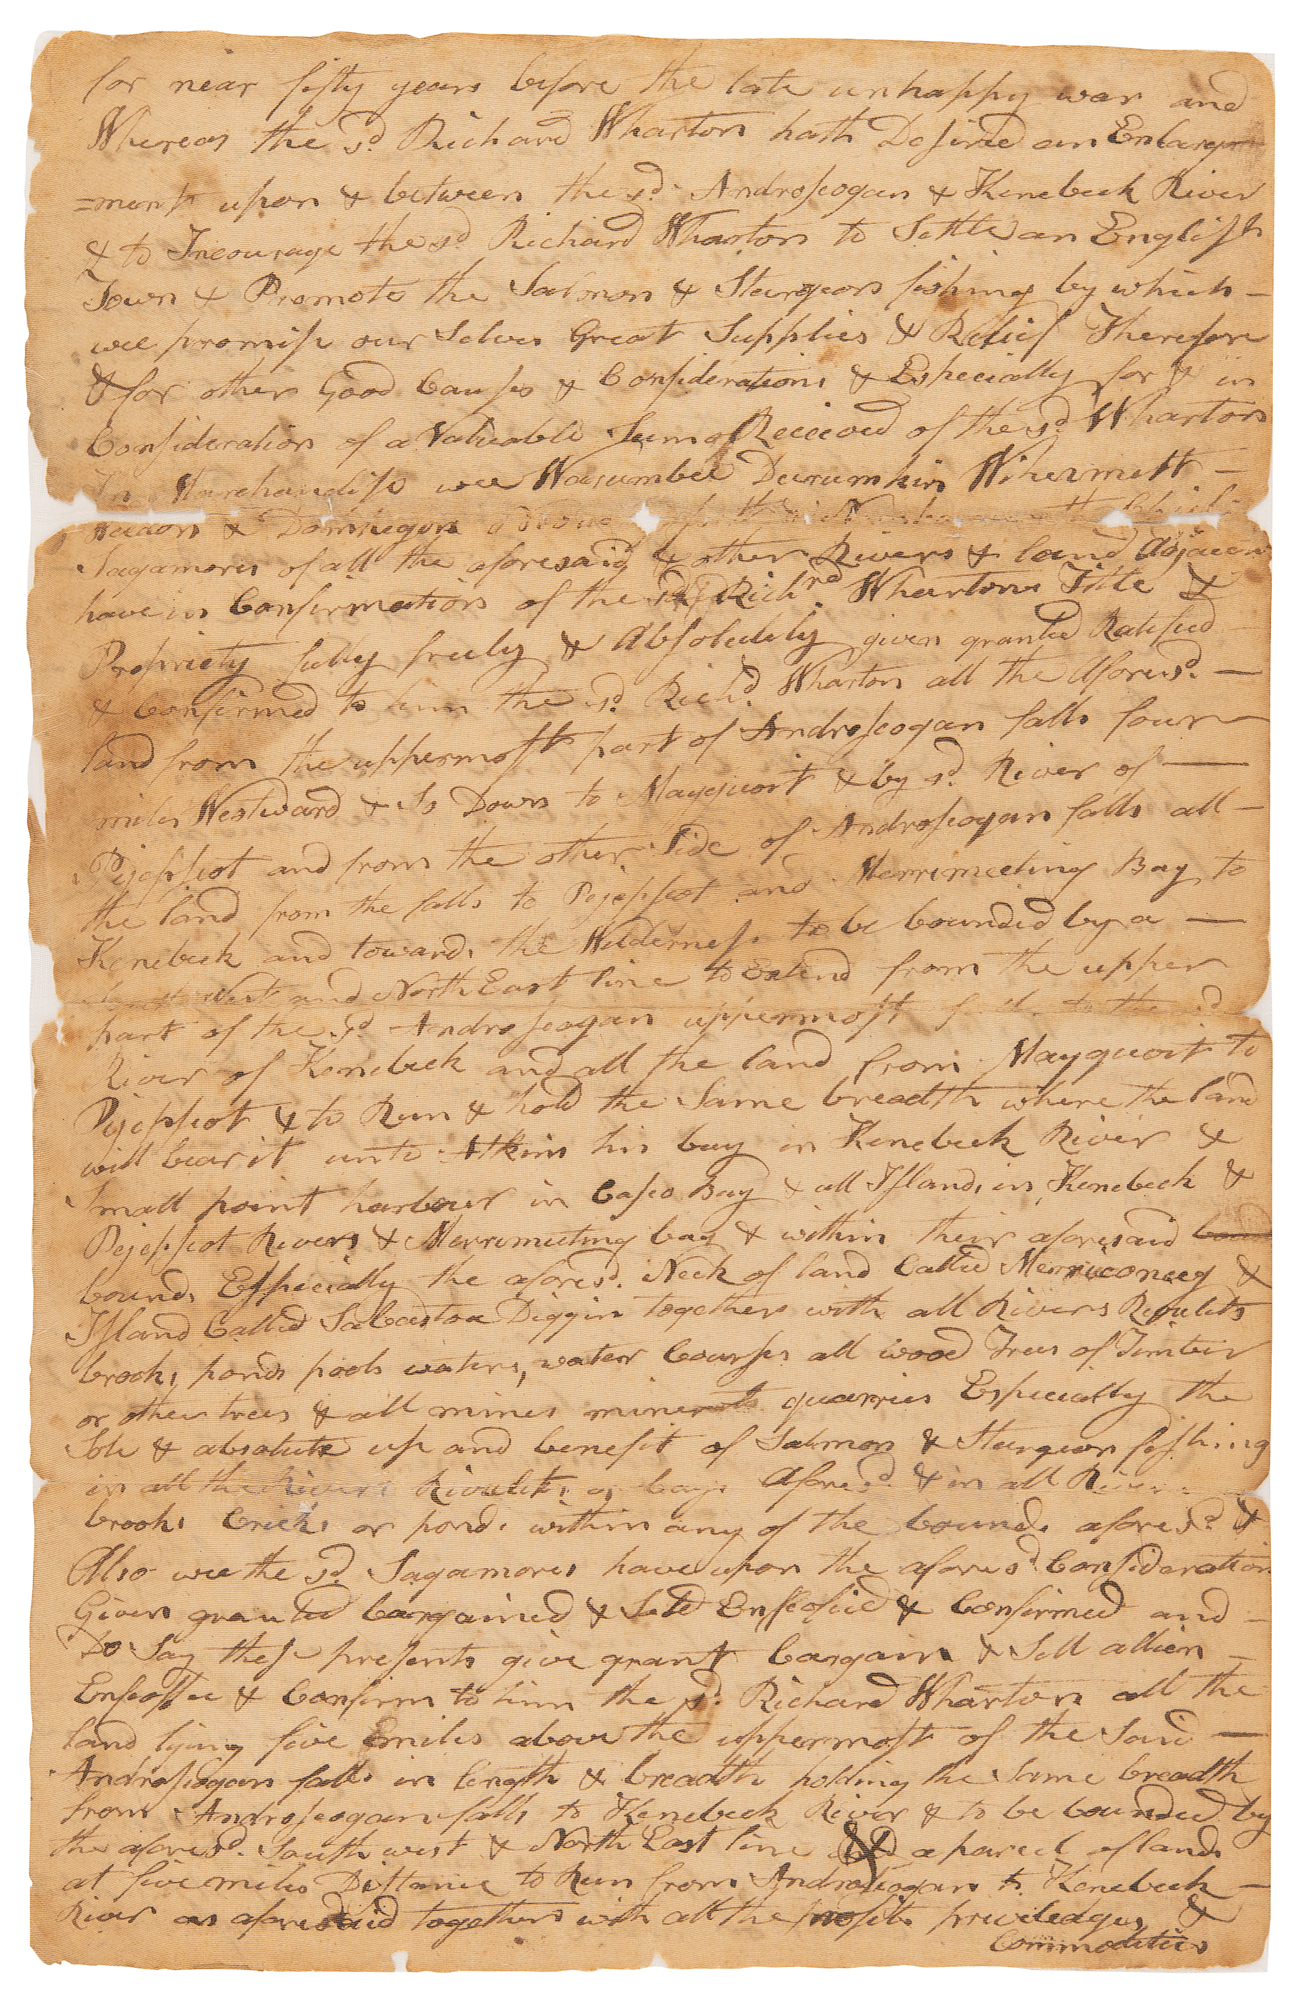 for near fifty years before the late unhappy war and
Whereas the sd Richard Wharton hath Desired an Enlarge
=ment upon & between the sd Androscogan & Kenebeck River
& to Incourage the sd Richard Wharton to Settle an English
Town & Promote the Salmon & Sturgeon fishing by which –
wee promise our Selves Great Supplies & Relief Therefore
& for other Good Causes & Considerations & Especially for & in
Consideration of a Valueable Sum of Received of the sd Wharton
In Marchandise wee Warumbee Darumkin Wihermett –
Weedon & Domhegon
Sagamores of all the aforesaid & other Rivers & land Adjacen
have in Confirmation of the sd Richrd Whartons Title &
Propriety fully freely & Absolutely given granted Ratified
& Confirmed to him the sd Richd Wharton all the Aforesd –
land from the uppermost part of Androscogan falls four
miles Westward & So Down to Mayquoit & by sd River of –
Pejepscot and from the other Side of Androscogan falls all –
the land from the falls to Pejepscot and Merrimeeting Bay to
Kenebeck and towards the Wilderness to be bounded by a –
West and North East line to Extend from the upper
part of the sd Androscogan uppermost falls to the sd
River of Kenebeck and all the land from Mayquoit to
Pejepscot & to Run & hold the Same breadth where the land
will bear it unto Atkins his bay in Kenebeck River &
Small point harbour in Casco Bay & all Islands in Kenebeck &
Pejepscot Rivers & Merrimeeting bay & within their aforesaid bound
bounds Especially the aforesd Neck of land Called Merriconeeg &
Island Called Sabastoa Diggin together with all Rivers Rivulets
brooks ponds pools waters, water Courses all wood Trees of Timber
or other trees & all mines minerals quarries Especially the
Sole & absolute use and benefit of Salmon & Sturgeon fishing
in all the Rivers Rivulets or bays Aforesd & in all Rivers
brooks Cricks or ponds within any of the bounds aforesd &
Also wee the sd Sagamores have upon the aforesd Consideration
Given granted bargained & Sold Enfeofied & Confirmed and –
Do Say these presents give grant bargain & Sell allien –
Enfoffee & Confirm to him the sd Richard Wharton all the
land lying five miles above the uppermost of the Said –
Androscogan falls in length & breadth holding the Same breadth
from Androscogan falls to Kenebeck River & to be bounded by
the aforesd South west & North East line & a parcel of lands
at five miles Distance to Run from Androscogan to Kenebeck –
River as aforesaid together with all the profits priviledges &
Commodities